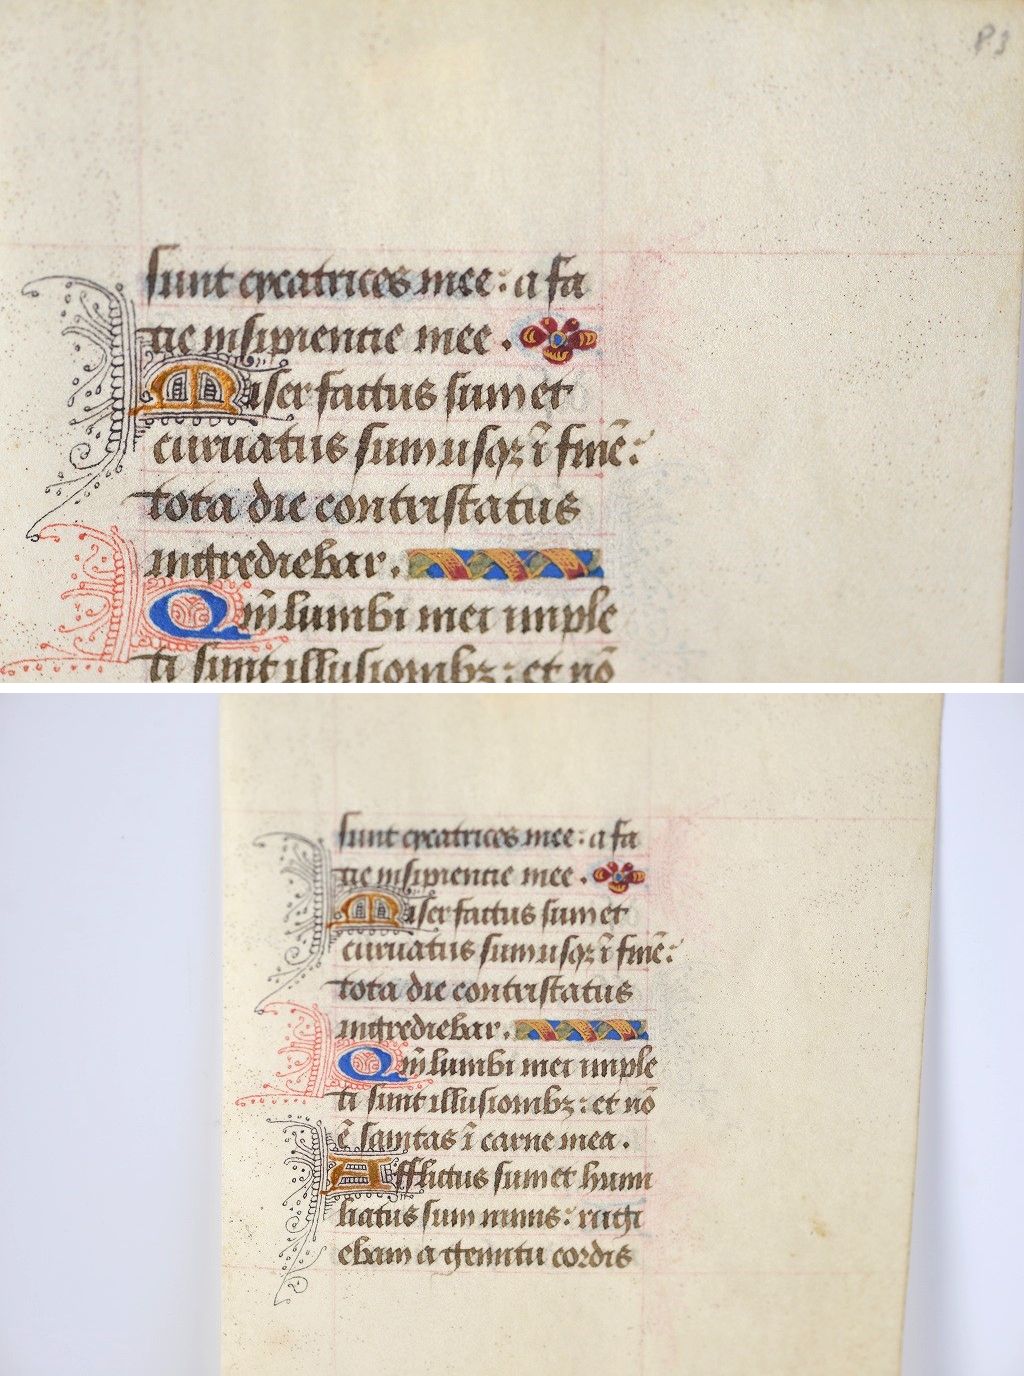 P3
sunt cycatrices mee: a fa
cie insipientie mee.
Miser factus sum et
curuatus sum usqꝫ ī finē:
tota die contristatus
ingrediebar.
Qm̄ lumbi mei imple
ti sunt illusionibꝫ: et nō
sunt cycatrices mee: a fa
cie insipientie mee.
Miser factus sum et
curuatus sum usqꝫ ī finē:
tota die contristatus
ingrediebar.
Qm̄ lumbi mei imple
ti sunt illusionibꝫ: et nō
ē sanitas ī carne mea.
Afflictus sum et humi
liatus sum nimis: rugi
ebam a gemitu cordis